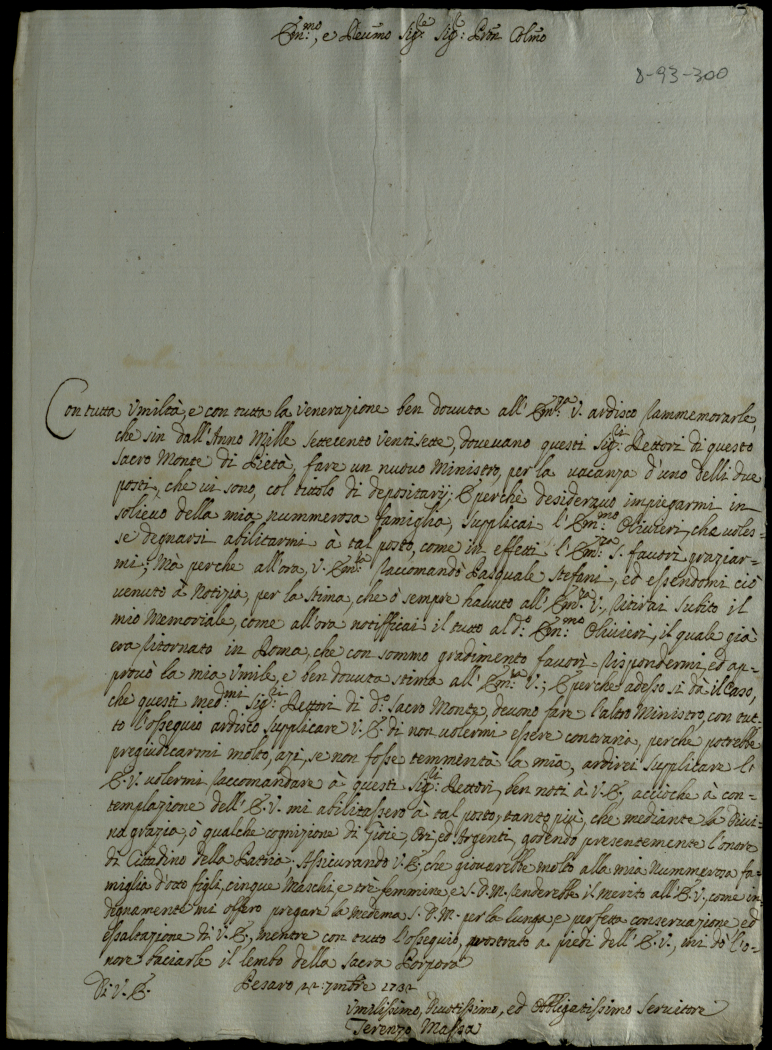 Em.mo, e Reumo Sig.re Sig.re Pron Colmo
8-93-300
Con tutta Vmiltà, e con tutta la Venerazione ben dovuta all'Em.za V. ardisco Rammemorarle,
che sin dall'Anno Mille Settecento Ventisette, dovevano questi Sig.ri Rettori di questo
Sacro Monte di Pietà, fare un nuovo Ministro, per la vacanza d'uno delli due
posti, che ui sono, col titolo di depositarij; E perche desideravo impiegarmi in
solievo della mia nummerosa famiglia, supplicai l'Em.mo Oliuieri, che voles=
se degnarsi abilitarmi à tal posto, come in effetti l'Em.za S. favorì graziar=
mi; Mà perche all'ora, V. Em.za Raccomandò Pasquale Stefani, ed essendomi ciò
venuto à Notizia, per la stima, che ò sempre hauuto all'Em.za V., Ritirai subito il
mio Memoriale, come all'ora notifficai il tutto al d.o Em.mo Oliuieri, il quale già
era Ritornato in Roma, che con sommo gradimento favorì Rispondermi, ed ap=
provò la mia Vmile, e ben dovuta stima all'Em.za V.; E perche adesso si dà il Caso,
che questi med.mi Sig.ri Rettori di d.o Sacro Monte, devono fare l'altro Ministro, con tut=
to l'ossequio ardisco supplicare V. E. di non volermi essere contraria, perche potrebbe
pregiudicarmi molto, azi, se non fosse temmerità la mia, ardirei supplicare l'
E. V. volermi Raccomandare à questi Sig.ri Rettori, ben noti à V. E., accioche à con=
templazione dell'E. V. mi abilitassero à tal posto, tanto più, che mediante la Diui=
na grazia, ò qualche cognizione di Gioie, Ori, ed Argenti, godendo presentemente l'onore
di Cittadino della Patria, Assicurando V. E., che giovarebbe molto alla mia Nummerosa fa=
miglia d'otto figli, cinque Maschi, e trè femmine, e S. D. M. Renderebbe il merito all'E. V., come in=
degnamente mi offero pregare la medema S. D. M. per la lunga, e perfetta conservazione, ed
essaltazione di V. E., mentre con tutto l'ossequio, prostrato a piedi dell'E. V., mi dò l'o=
nore baciarle il lembo della Sacra Porpora
Di V. E. Pesaro 22: 7mbre 1732
Vmilissimo, Deuotissimo, ed Obbligatissimo Seruitore
Terenzo Massa